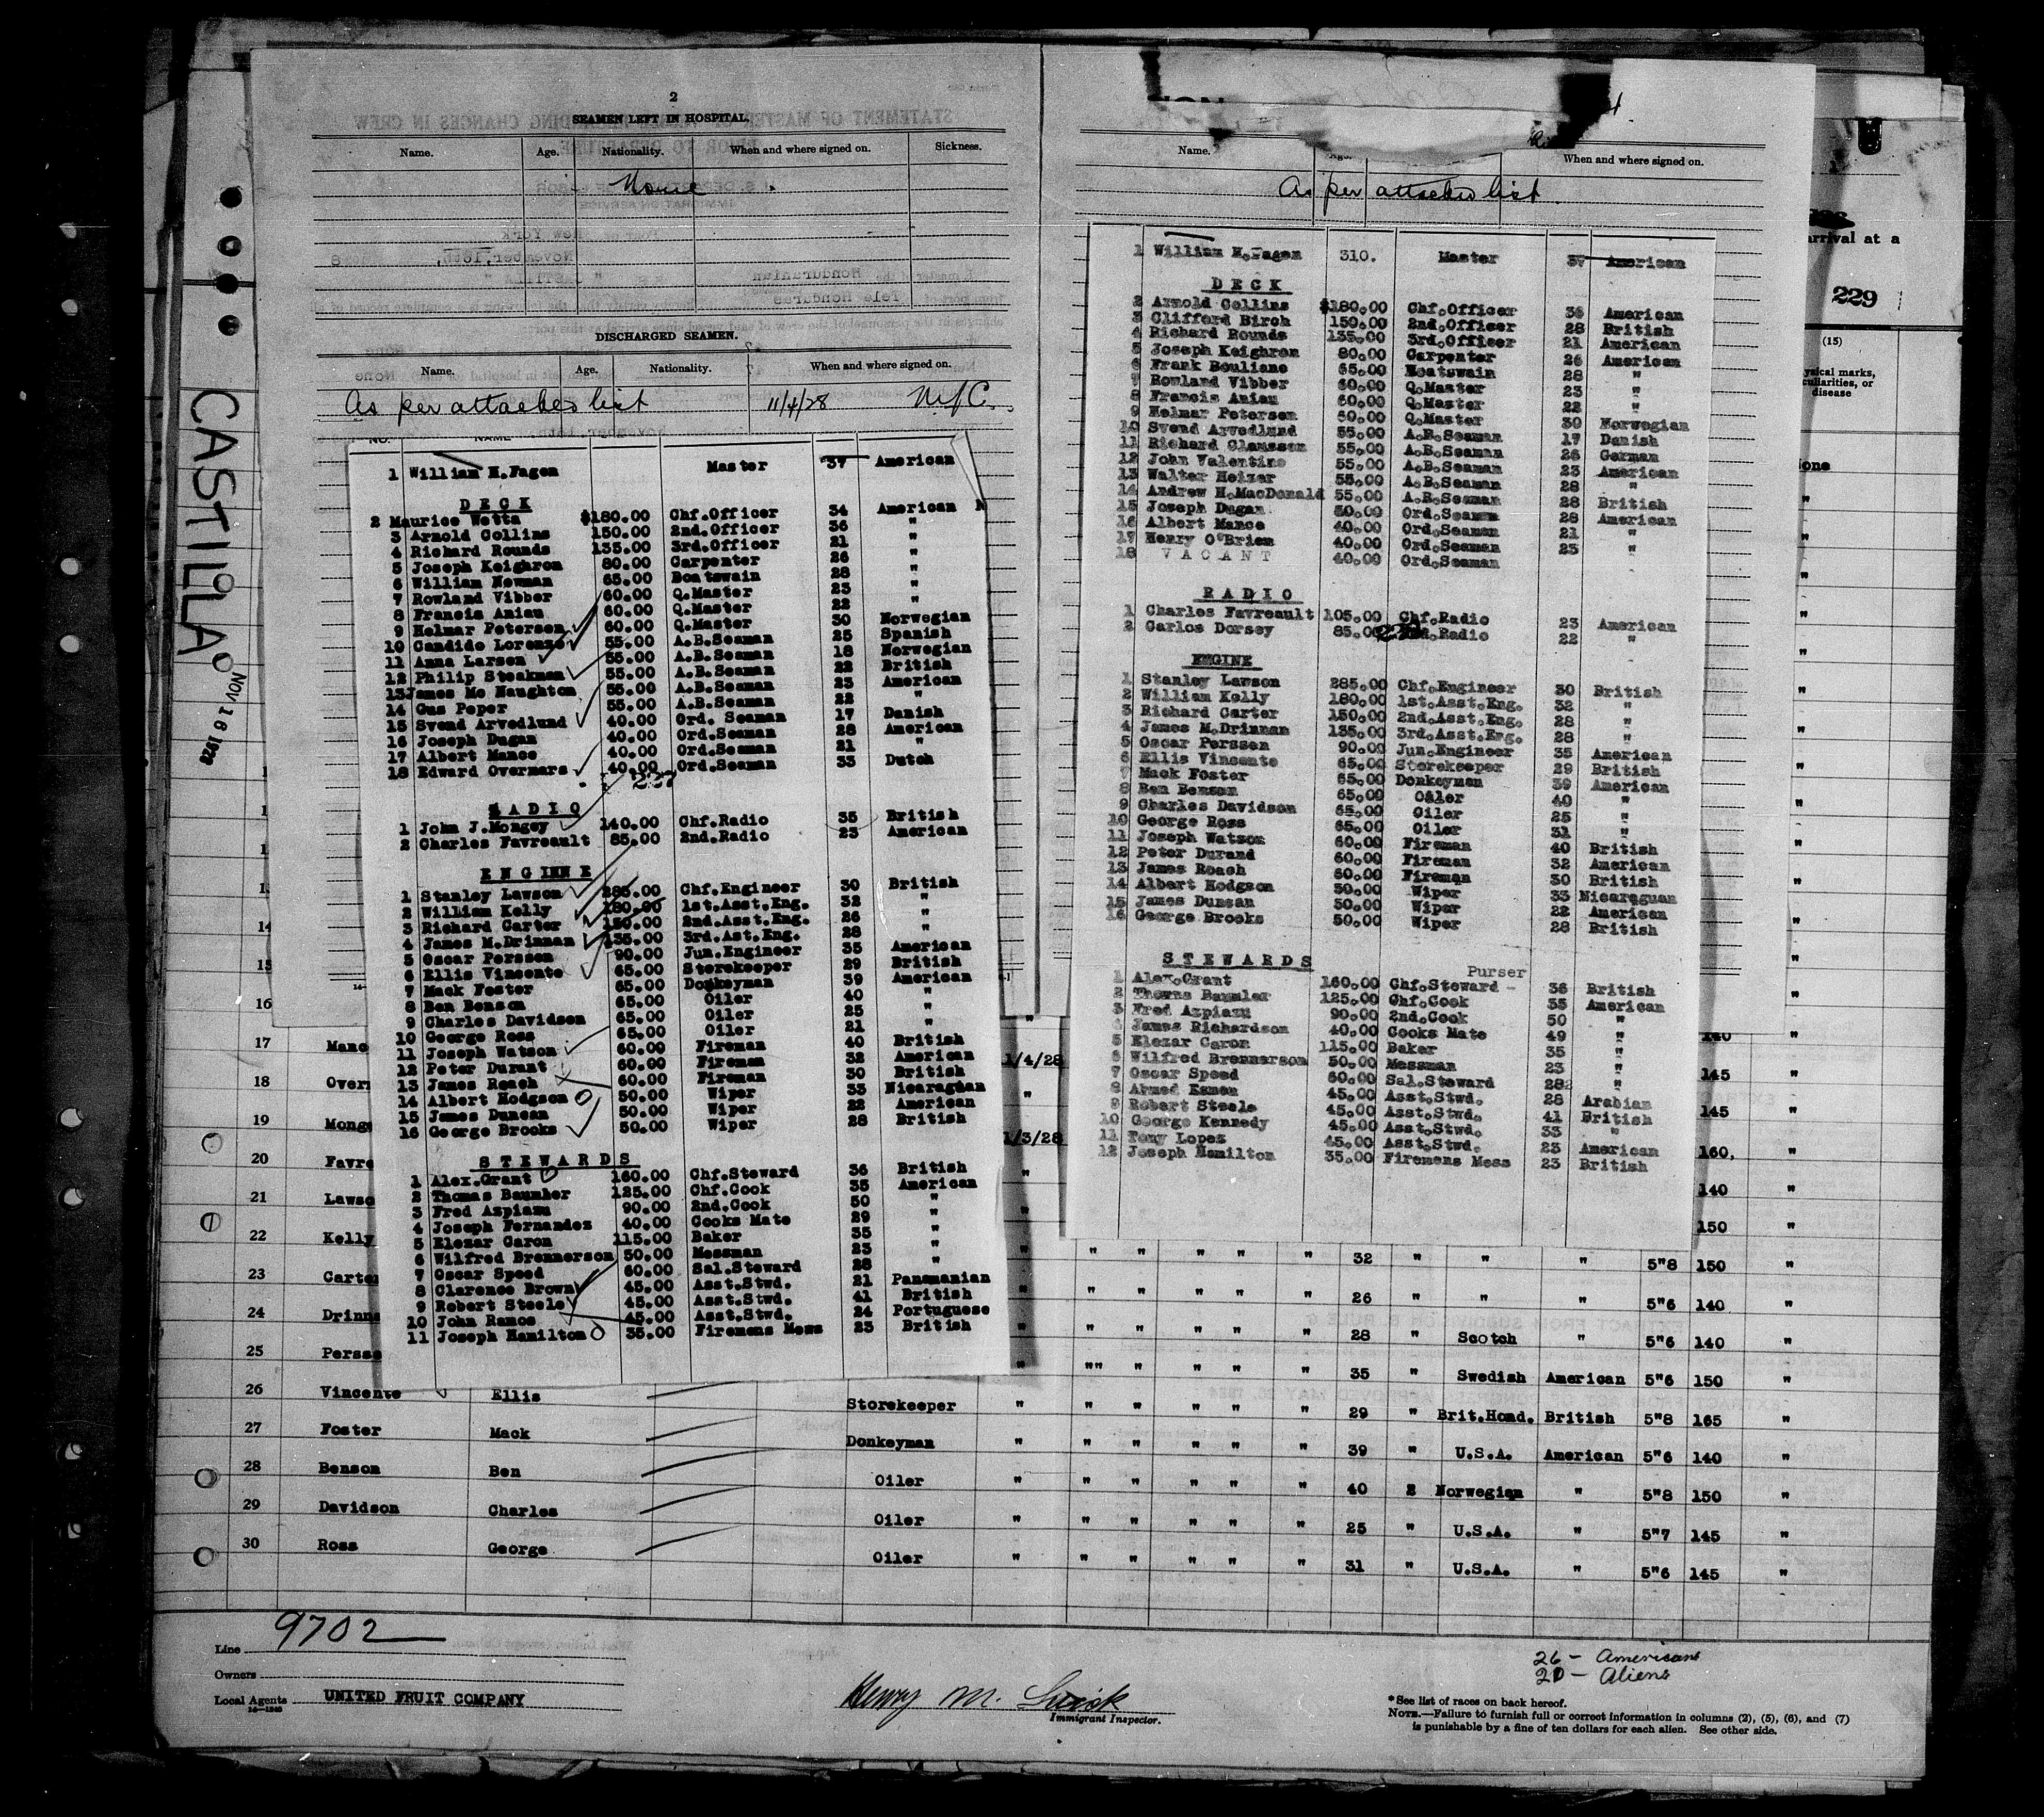 2
SEAMEN LEFT IN HOSPITAL.
Name. Age. Nationality. When and where signed on. Sickness.
None
DISCHARGED SEAMEN.
Name. Age. Nationality. When and where signed on.
As per attached list 11/4/28
NO. NAME
1 William H.Fagen Master 37 American
DECK
2 Maurice Wetta $180.00 Chf.Officer 34 American
3 Arnold Collins 150.00 2nd.Officer 36 "
4 Richard Rounds 135.00 3rd.Officer 21 "
5 Joseph Keighron 80.00 Carpenter 26 "
6 William Newman 65.00 Boatswain 28 "
7 Rowland Vibber 60.00 Q.Master 23 "
8 Francis Aniau 60.00 Q.Master 22 "
9 Helmar Petersen 60.00 Q.Master 30 Norwegian
10 Candido Lorenzo 55.00 A.B.Seaman 25 Spanish
11 Anna Larsen 55.00 A.B.Seaman 18 Norwegian
12 Philip Steakman 55.00 A.B.Seaman 22 British
13 James Mc Naughton 55.00 A.B.Seaman 23 American
14 Gus Peper 55.00 A.B.Seaman 22 "
15 Svend Arvedlund 40.00 Ord. Seaman 17 Danish
16 Joseph Dugan 40.00 Ord.Seaman 28 American
17 Albert Mance 40.00 Ord.Seaman 21 "
18 Edward Overmars 40.00 Ord.Seaman 33 Dutch
RADIO
1 John J.Mongey 140.00 Chf.Radio 35 British
2 Charles Favreault 85.00 2nd.Radio 23 American
ENGINE
1 Stanley Lawson 285.00 Chf.Engineer 30 British
2 William Kelly 180.00 1st.Asst.Eng. 32 "
3 Richard Carter 150.00 2nd.Asst.Eng. 26 "
4 James M.Drinnan 135.00 3rd.Ast.Eng. 28 "
5 Oscar Perssen 90.00 Jun.Engineer 35 American
6 Ellis Vincente 65.00 Storekeeper 29 British
7 Mack Foster 65.00 Donkeyman 39 American
8 Ben Benson 65.00 Oiler 40 "
9 Charles Davidson 65.00 Oiler 25 "
10 George Ross 65.00 Oiler 21 "
11 Joseph Watson 60.00 Fireman 40 British
12 Peter Durant 60.00 Fireman 32 American
13 James Roach 60.00 Fireman 30 British
14 Albert Hodgson 50.00 Wiper 33 Nicaraguan
15 James Duncan 50.00 Wiper 22 American
16 George Brooks 50.00 Wiper 28 British
STEWARDS
1 Alex.Grant 160.00 Chf.Steward 36 British
2 Thomas Baumher 125.00 Chf.Cook 35 American
3 Fred Azpiazu 90.00 2nd.Cook 50 "
4 Joseph Fernandez 40.00 Cooks Mate 29 "
5 Elezar Caron 115.00 Baker 35 "
6 Wilfred Brennerson 50.00 Messman 23 "
7 Oscar Speed 60.00 Sal.Steward 28 "
8 Clarence Brown 45.00 Asst.Stwd. 21 Panamanian
9 Robert Steele 45.00 Asst.Stwd. 41 British
10 John Ramos 45.00 Asst.Stwd. 24 Portuguese
11 Joseph Hamilton 35.00 Firemens Mess 23 British
Name. When and where signed on.
As per attached list
1 William H.Fagen 310. Master 37 American
DECK
2 Arnold Collins $180.00 Chf.Officer 36 American
3 Clifford Birch 150.00 2nd.Officer 28 British
4 Richard Rounds 135.00 3rd.Officer 21 American
5 Joseph Keighron 80.00 Carpenter 26 American
6 Frank Bouliane 65.00 Boatswain 28 "
7 Rowland Vibber 60.00 Q.Master 23 "
8 Francis Aniau 60.00 Q.Master 22 "
9 Helmar Petersen 60.00 Q.Master 30 Norwegian
10 Svend Arvedlund 55.00 A.B.Seaman 17 Danish
11 Richard Clausson 55.00 A.B.Seaman 26 German
12 John Valentine 55.00 A.B.Seaman 23 American
13 Walter Heizer 55.00 A.B.Seaman 28 "
14 Andrew H.MacDonald 55.00 A.B.Seaman 28 British
15 Joseph Dugan 50.00 Ord.Seaman 28 American
16 Albert Mance 40.00 Ord.Seaman 21 "
17 Henry O'Brien 40.00 Ord.Seaman 23 "
18 VACANT 40.00 Ord.Seaman
RADIO
1 Charles Favreault 105.00 Chf.Radio 23 American
2 Carlos Dorsey 85.00 2nd.Radio 22 "
ENGINE
1 Stanley Lawson 285.00 Chf.Engineer 30 British
2 William Kelly 180.00 1st.Asst.Eng. 32 "
3 Richard Carter 150.00 2nd.Asst.Eng. 28 "
4 James M.Drinnan 135.00 3rd.Asst.Eng. 28 "
5 Oscar Perssen 90.00 Jun.Engineer 35 American
6 Ellis Vincente 65.00 Storekeeper 29 British
7 Mack Foster 65.00 Donkeyman 39 American
8 Ben Benson 65.00 Oiler 40 "
9 Charles Davidson 65.00 Oiler 25 "
10 George Ross 65.00 Oiler 31 "
11 Joseph Watson 60.00 Fireman 40 British
12 Peter Durand 60.00 Fireman 32 American
13 James Roach 60.00 Fireman 30 British
14 Albert Hodgson 50.00 Wiper 33 Nicaraguan
15 James Duncan 50.00 Wiper 22 American
16 George Brooks 50.00 Wiper 28 British
STEWARDS
Purser
1 Alex.Grant 160.00 Chf.Steward - 36 British
2 Thorns Baumler 125.00 Chf.Cook 35 American
3 Fred Azpiazu 90.00 2nd.Cook 50 "
4 James Richardson 40.00 Cooks Mate 49 "
5 Elezar Caron 115.00 Baker 35 "
6 Wilfred Brennerson 50.00 Messman 23 "
7 Oscar Speed 60.00 Sal.Steward 28 "
8 Ahmed Esmen 45.00 Asst.Stwd. 28 Arabian
9 Robert Steele 45.00 Asst.Stwd. 41 British
10 George Kennedy 45.00 Asst.Stwd. 33 "
11 Tony Lopez 45.00 Asst.Stwd. 23 American
12 Joseph Hamilton 35.00 Firemens Mess 23 British
arrival at a
229
(15)
disease
CASTILLA
NOV 16 1928
14
15
16
17 Manc 1/4/28 140 "
18 Over " 145 "
19 Mong 1/3/28 145 "
20 Favre " 160, "
21 Lawso " 140 "
22 Kelly " 150 "
23 Carte " " " " " " 32 " " " 5"8 150 "
24 Drinna " " " " " " 26 " " " 5"6 140 "
25 Persse " " " " " " 28 " Scotch " 5"6 140 "
" "" " " " " 35 " Swedish American 5"6 150 "
26 Vincente Ellis Storekeeper " " " " " " 29 " Brit.Hond. British 5"8 165 "
27 Foster Mack Donkeyman " " " " " " 39 " U.S.A. American 5"6 140 "
28 Benson Ben Oiler " " " " " " 40 " Norwegian " 5"8 150 "
29 Davidson Charles Oiler " " " " " " 25 " U.S.A. " 5"7 145 "
30 Ross George Oiler " " " " " " 31 " U.S.A. " 5"6 145 "
Line 9702
Owners
Local Agents UNITED FRUIT COMPANY
Henry M.
Immigrant Inspector.
26 - Americans
20 - Aliens
*See list of races on back hereof.
NOTE.—Failure to furnish full or correct information in columns (2), (5), (6), and (7)
is punishable by a fine of ten dollars for each alien. See other side.